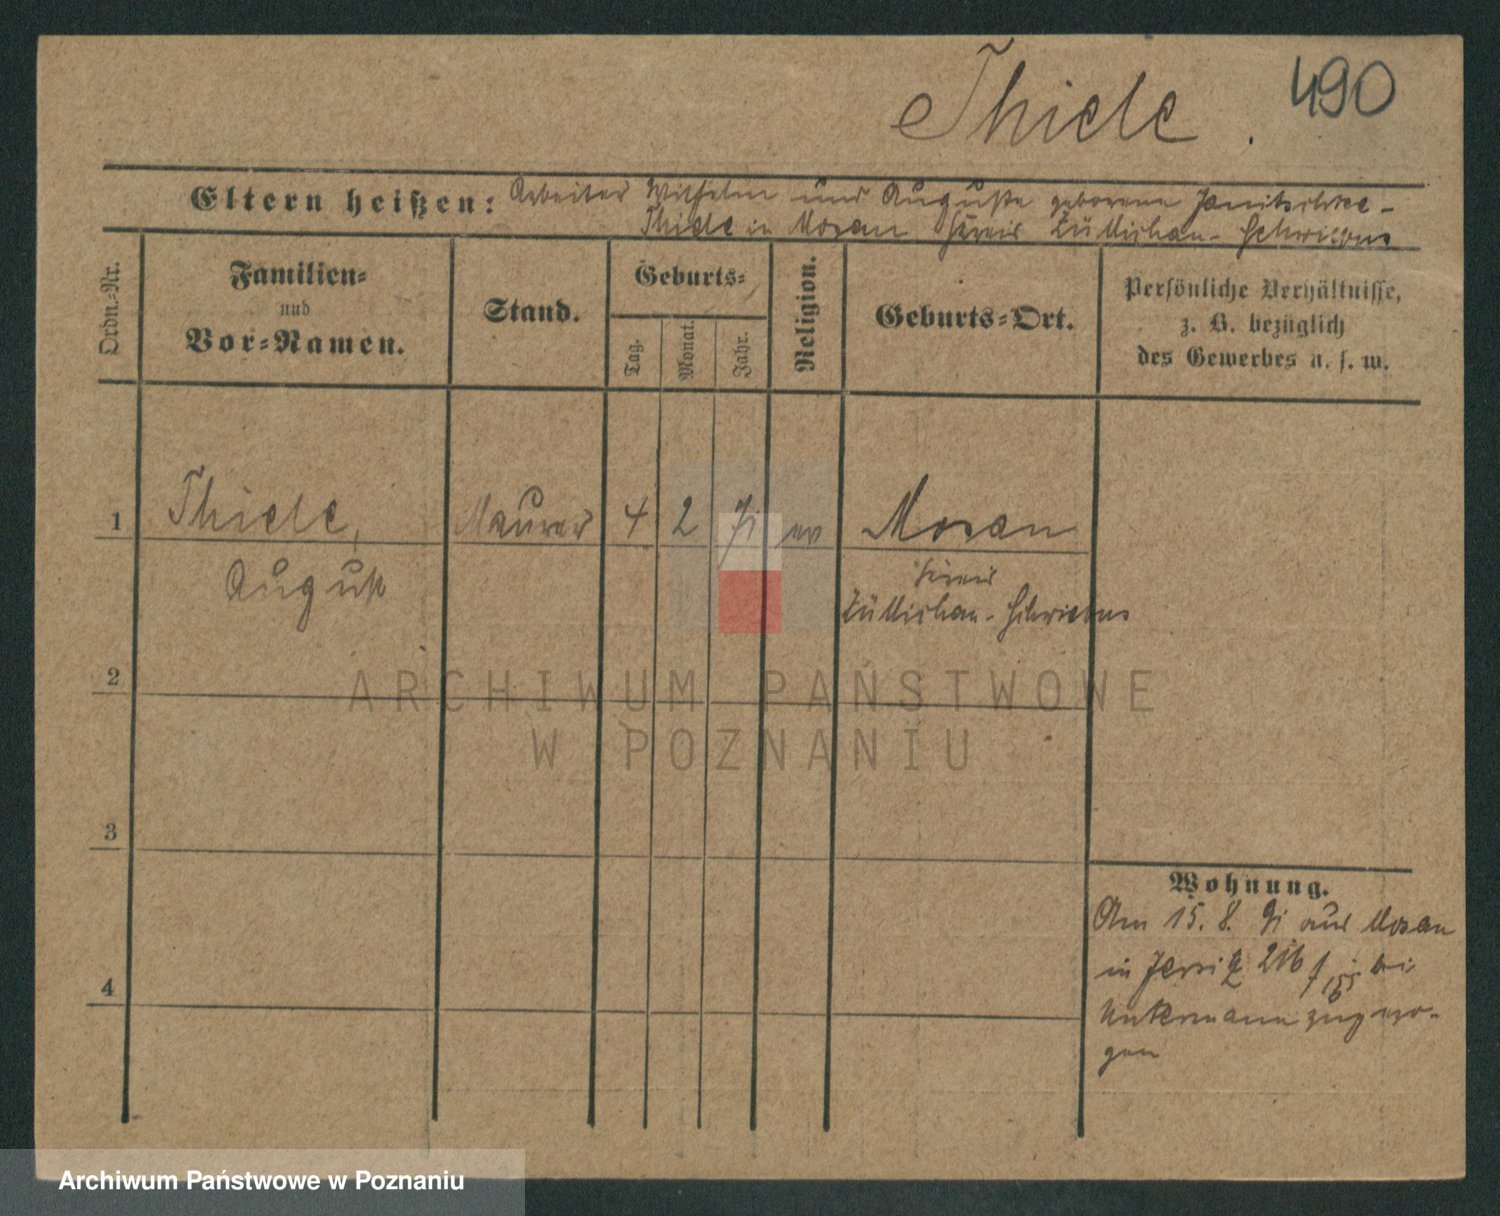 Thiele.
490
Eltern heißen: Arbeiter Wilhelm und Auguste geborene Janitschke-
Thiele in Mosau Kreis Züllichau-Schwiebus
Ordn.-Nr.
Familien-
und
Vor-Namen.
Stand.
Geburts-
Tag.
Monat.
Jahr.
Religion.
Geburts-Ort.
Persönliche Verhältnisse,
z. B. bezüglich
des Gewerbes u. s. w.
1 Thiele, Maurer 4 2 71 ev Mosau
August
Kreis
Züllichau-Schwiebus
2
3
4
Wohnung.
Am 15. 8. 91 aus Mosau
in Jersitz 216 bei
zugezo-
gen
ARCHIWUM PAŃSTWOWE
W POZNANIU
Archiwum Państwowe w Poznaniu